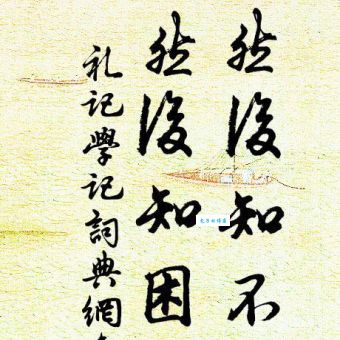 然後知不
然後知困
礼记學记詞典網